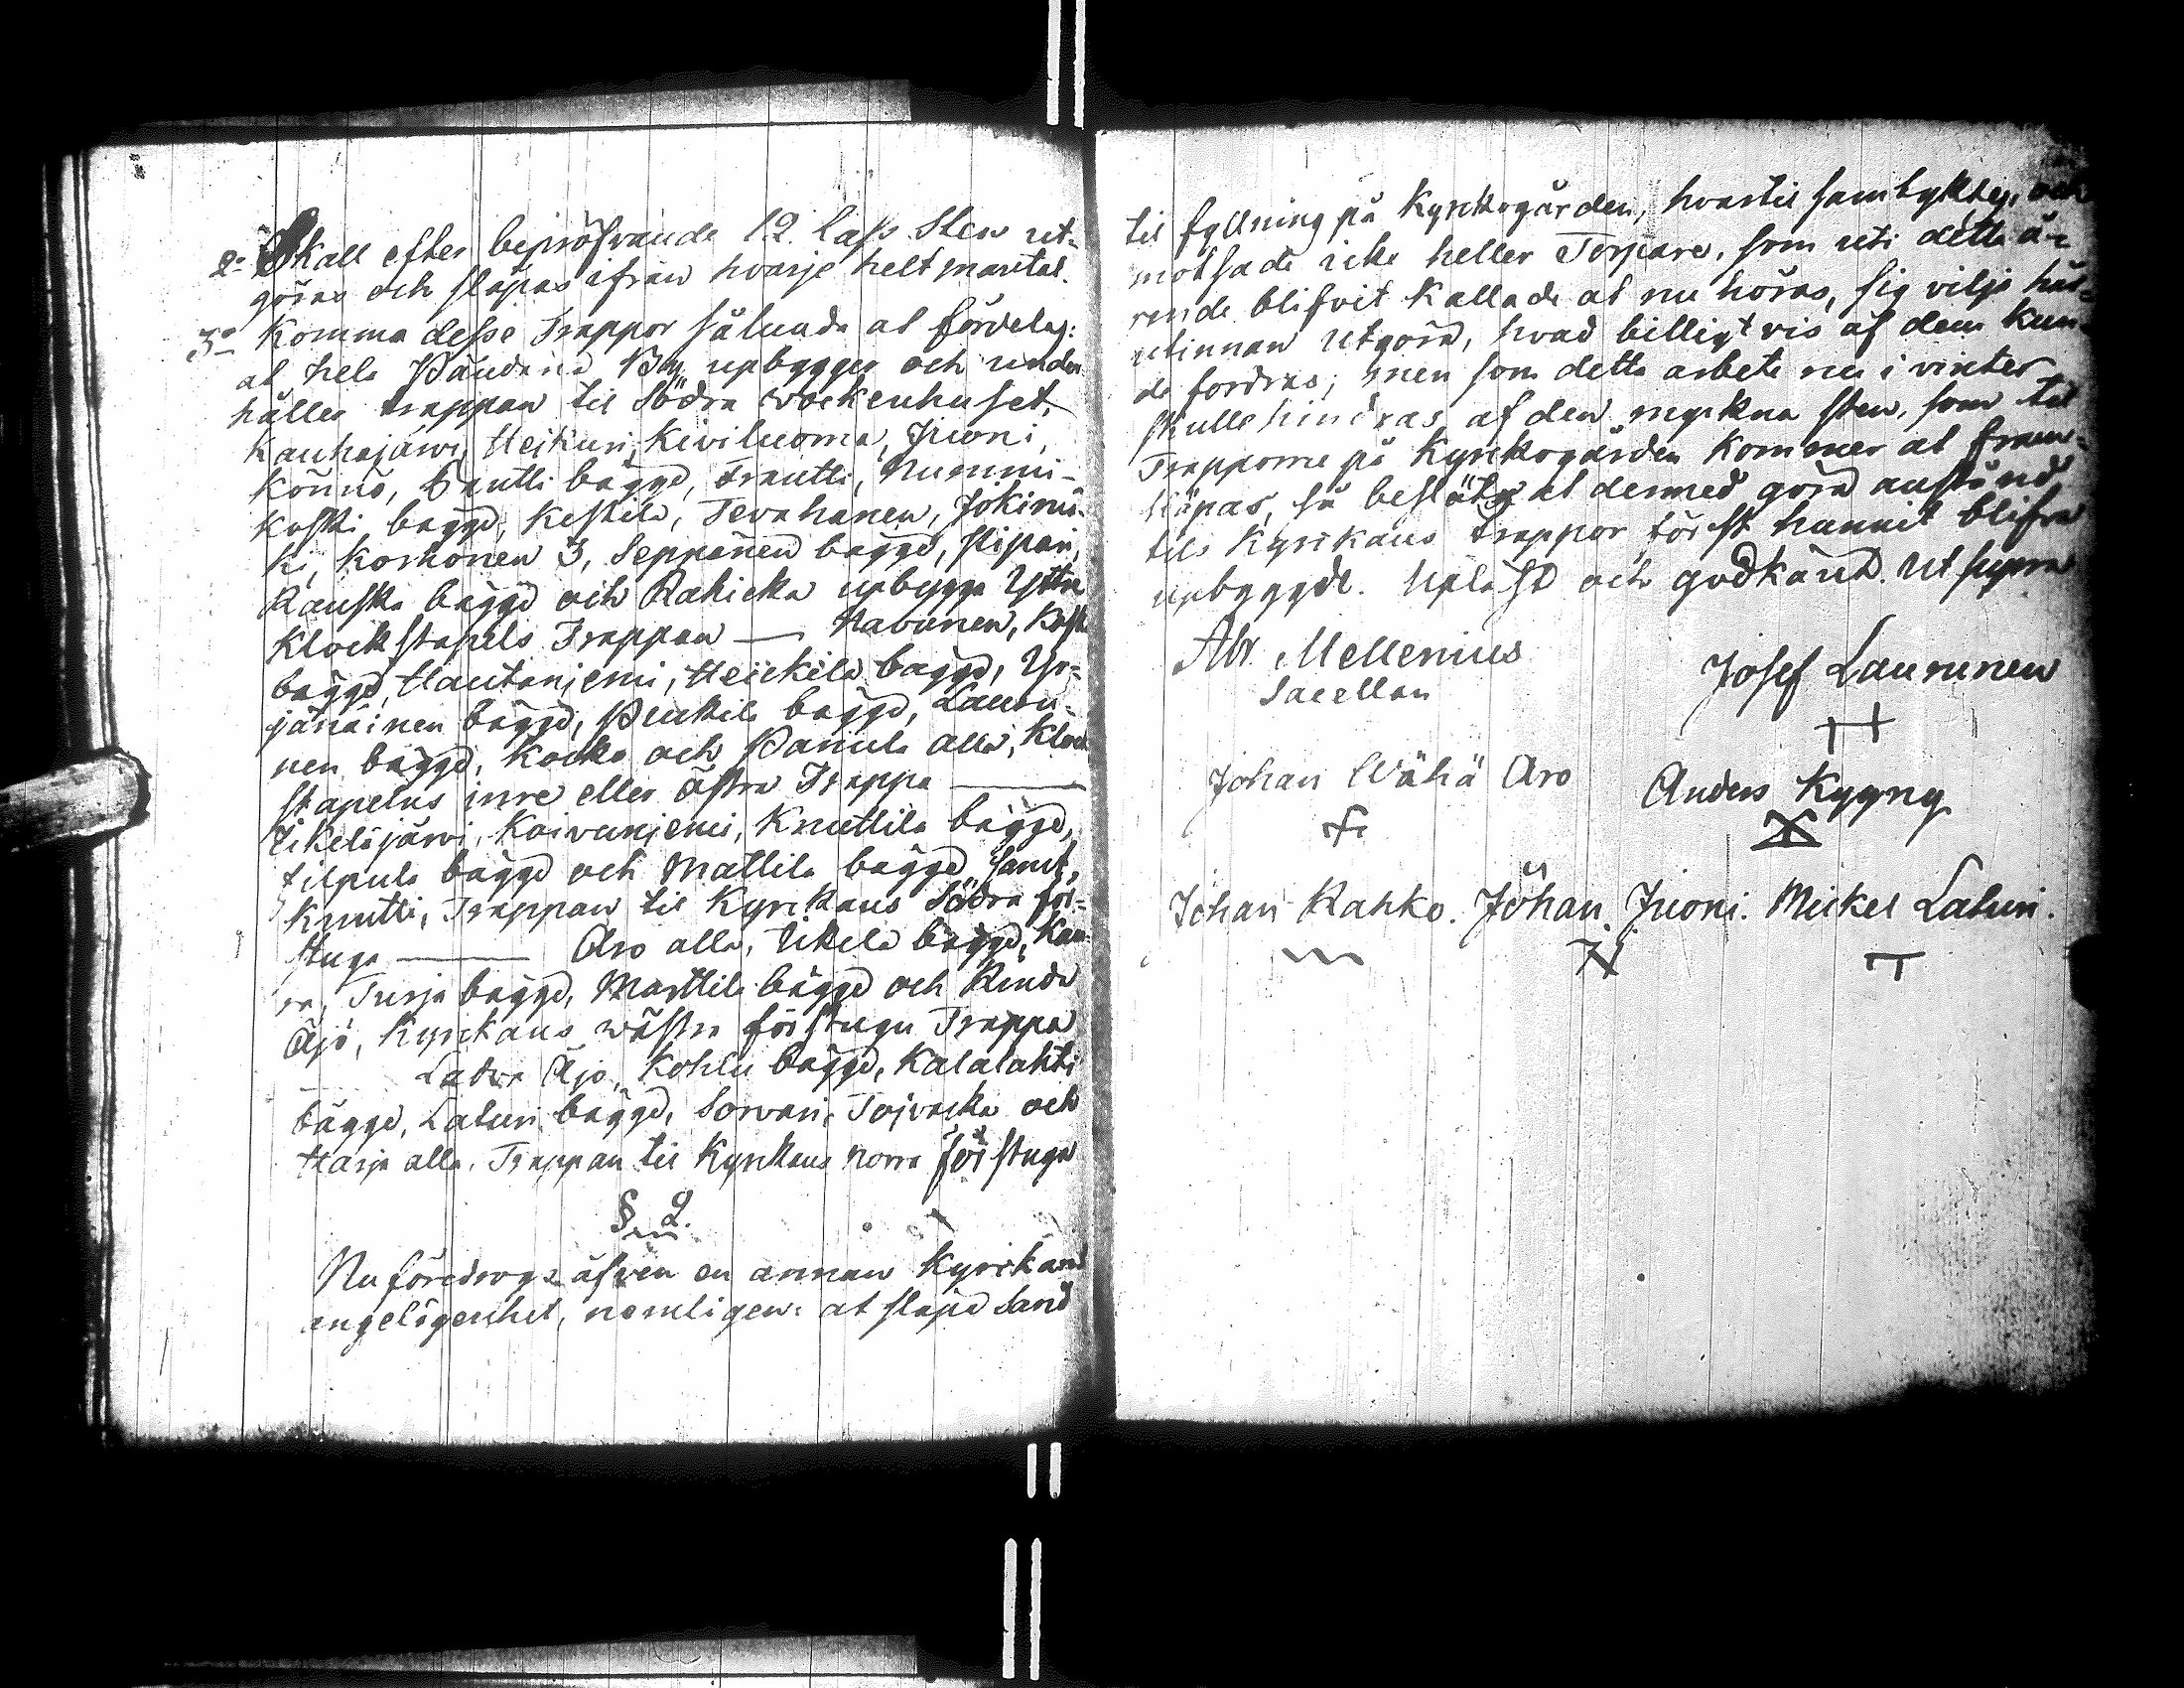 2o Skall efter bepröfvande 12 lass Sten ut=
göras och släpas ifrån hvarje helt mantal.
3o Komma desse Trappor sålunda at fördelas:
at hela Påudana By upbygger och under
håller trappan til Södra wockenhuset.
Kauhajärwi, Heikuri, Kiviluoma, Jrioni,
Könnö, Pentti bägge, Frantti, Nummi-
koski bägge, Keskilä, Tevahanen, Jokimä=
ki, Korhonen 3, Seppänen bägge, Slipari,
Rauska bägge och Rahicka upbygga Yttre
Klockstapels Trappan — Navanen, Kosk
bägge, Hautaniemi, Heickilä bägge, Yr=
jänäinen bägge, Penttilä bägge, Lauru=
nen bägge, Kocko och Panula alla, Klock
stapelns inre eller östra Trappa —
Ikeläjärvi, Koivuniemi, Knuttila bägge,
Filpula bägge och Mattila bägge samt
Knutti, Trappan til Kyrckans Södra för=
stuga — Aro alla, Ikelä bägge, Kau=
ra, Turja bägge, Marttila bägge och Rinda
Äjö, Kyrckans wästra förstugu Trappa
Latva Äjö, Kohlu bägge, Kalalahti
bägge, Laturi bägge, Sorvari, Toivacka och
Harja alla, Trappan til Kyrckans norra förstuga
§ 2.
Nu föredrogs äfven en annan Kyrckans
angelägenhet, nemligen: at släpa Sand
til fyllning på Kyrckogården, hvartil samtyktes, och
motsade icke heller Torpare, som uti detta ä-
rende blifvit kallade at nu höras, sig vilja här=
utinnan utgöra, hvad billigt vis af dem kun-
de fordras; men som detta arbete nu i vinter
skulle hindras af den myckna sten, som til
Trapporne på Kyrckogården kommer at fram=
släpas, så beslöts at dermed göra anstånd,
tils Kyrckans trappor först hunnit blifva
upbyggde. Upläst och godkänt. Ut supra
Abr. Mellenius
Sacellan
Josef Laurunen
Johan Wähä Aro
Anders Kyyny
Johan Rahko. Johan Jrioni. Mickel Laturi.